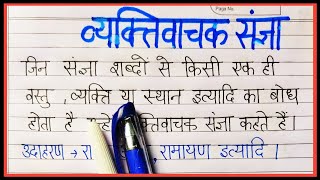 Page No.
व्यक्तिवाचक संज्ञा
जिन संज्ञा शब्दों से किसी एक ही
वस्तु , व्यक्ति या स्थान इत्यादि का बोध
होता है संज्ञा कहते हैं।
उदाहरण → रा , रामायण इत्यादि ।